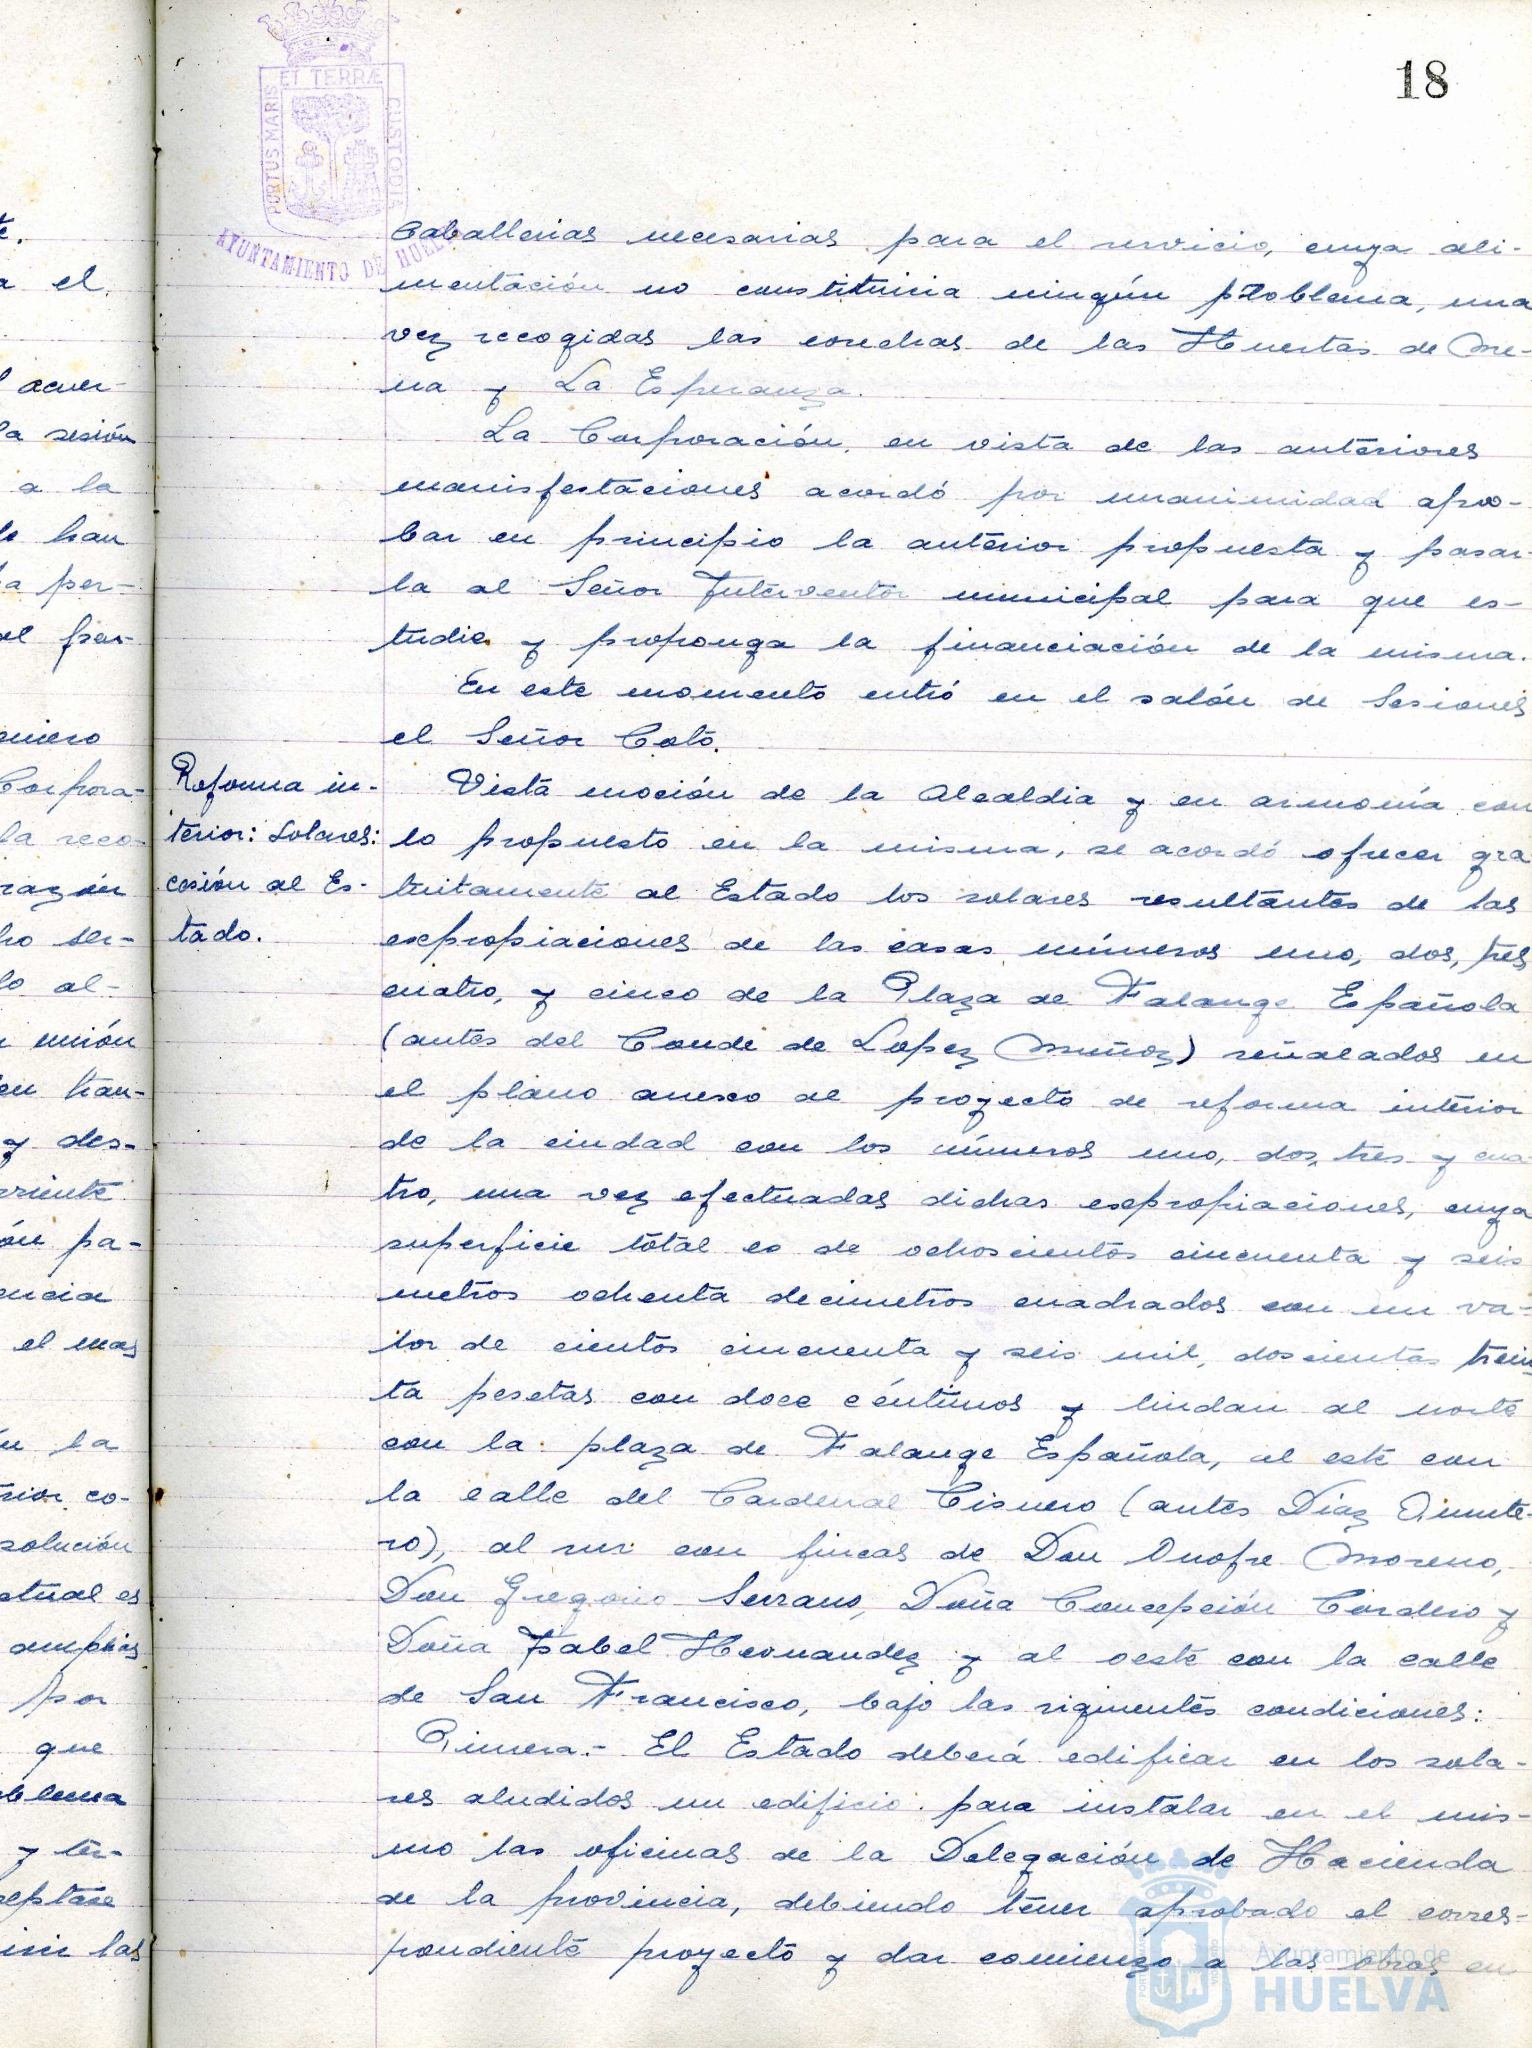 18
PORTUS MARIS ET TERRÆ CUSTODIA
AYUNTAMIENTO DE HUELVA
te.
a el
acuer-
la sesión
a la
han
a per-
al per-
eniero
Corpora-
la reco-
razón
ho ser-
lo al-
unión
en tran-
y des-
rriente
ón pa-
encia
el mas
la
rior co-
solución
ctual es
amplias
por
que
blema
y ter-
eptase
las
caballerias necesarias para el servicio, cuya ali-
mentación no constituiria ningún problema, una
vez recogidas las cosechas de las Huertas de Me-
na y La Esperanza.
La Corporación, en vista de las anteriores
manisfestaciones acordó por unanimidad apro-
bar en principio la anterior propuesta y pasar-
la al Señor Interventor municipal para que es-
tudie y proponga la financiación de la misma.
En este momento entró en el salón de Sesiones
el Señor Coto.
Reforma in-
terior: Solares:
cesión al Es-
tado.
Vista moción de la Alcaldia y en armonía con
lo propuesto en la misma, se acordó ofrecer gra
tuitamente al Estado los solares resultantes de las
expropiaciones de las casas números uno, dos, tres,
cuatro, y cinco de la Plaza de Falange Española
(antes del Conde de Lopez Muñoz) señalados en
el plano anexo al proyecto de reforma interior
de la ciudad con los números uno, dos, tres y cua-
tro, una vez efectuadas dichas expropiaciones, cuya
superficie total es de ochoscientos cincuenta y seis
metros ochenta decimetros cuadrados con un va-
lor de cientos cincuenta y seis mil, doscientas trein
ta pesetas con doce céntimos y lindan al norte
con la plaza de Falange Española, al este con
la calle del Cardenal Cisnero (antes Diaz Quinte-
ro), al sur con fincas de Don Onofre Moreno,
Don Gregorio Serrano, Doña Concepción Cordero y
Doña Isabel Hernandez y al oeste con la calle
de San Francisco, bajo las siguientes condiciones:
Primera.- El Estado deberá edificar en los sola-
res aludidos un edificio para instalar en el mis-
mo las oficinas de la Delegación de Hacienda
de la provincia, debiendo tener aprobado el corres-
pondiente proyecto y dar comienzo a las obras en
Ayuntamiento de
HUELVA